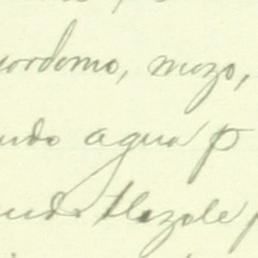 yordomo, mozo,
ndo agua p
ndo tlazole p